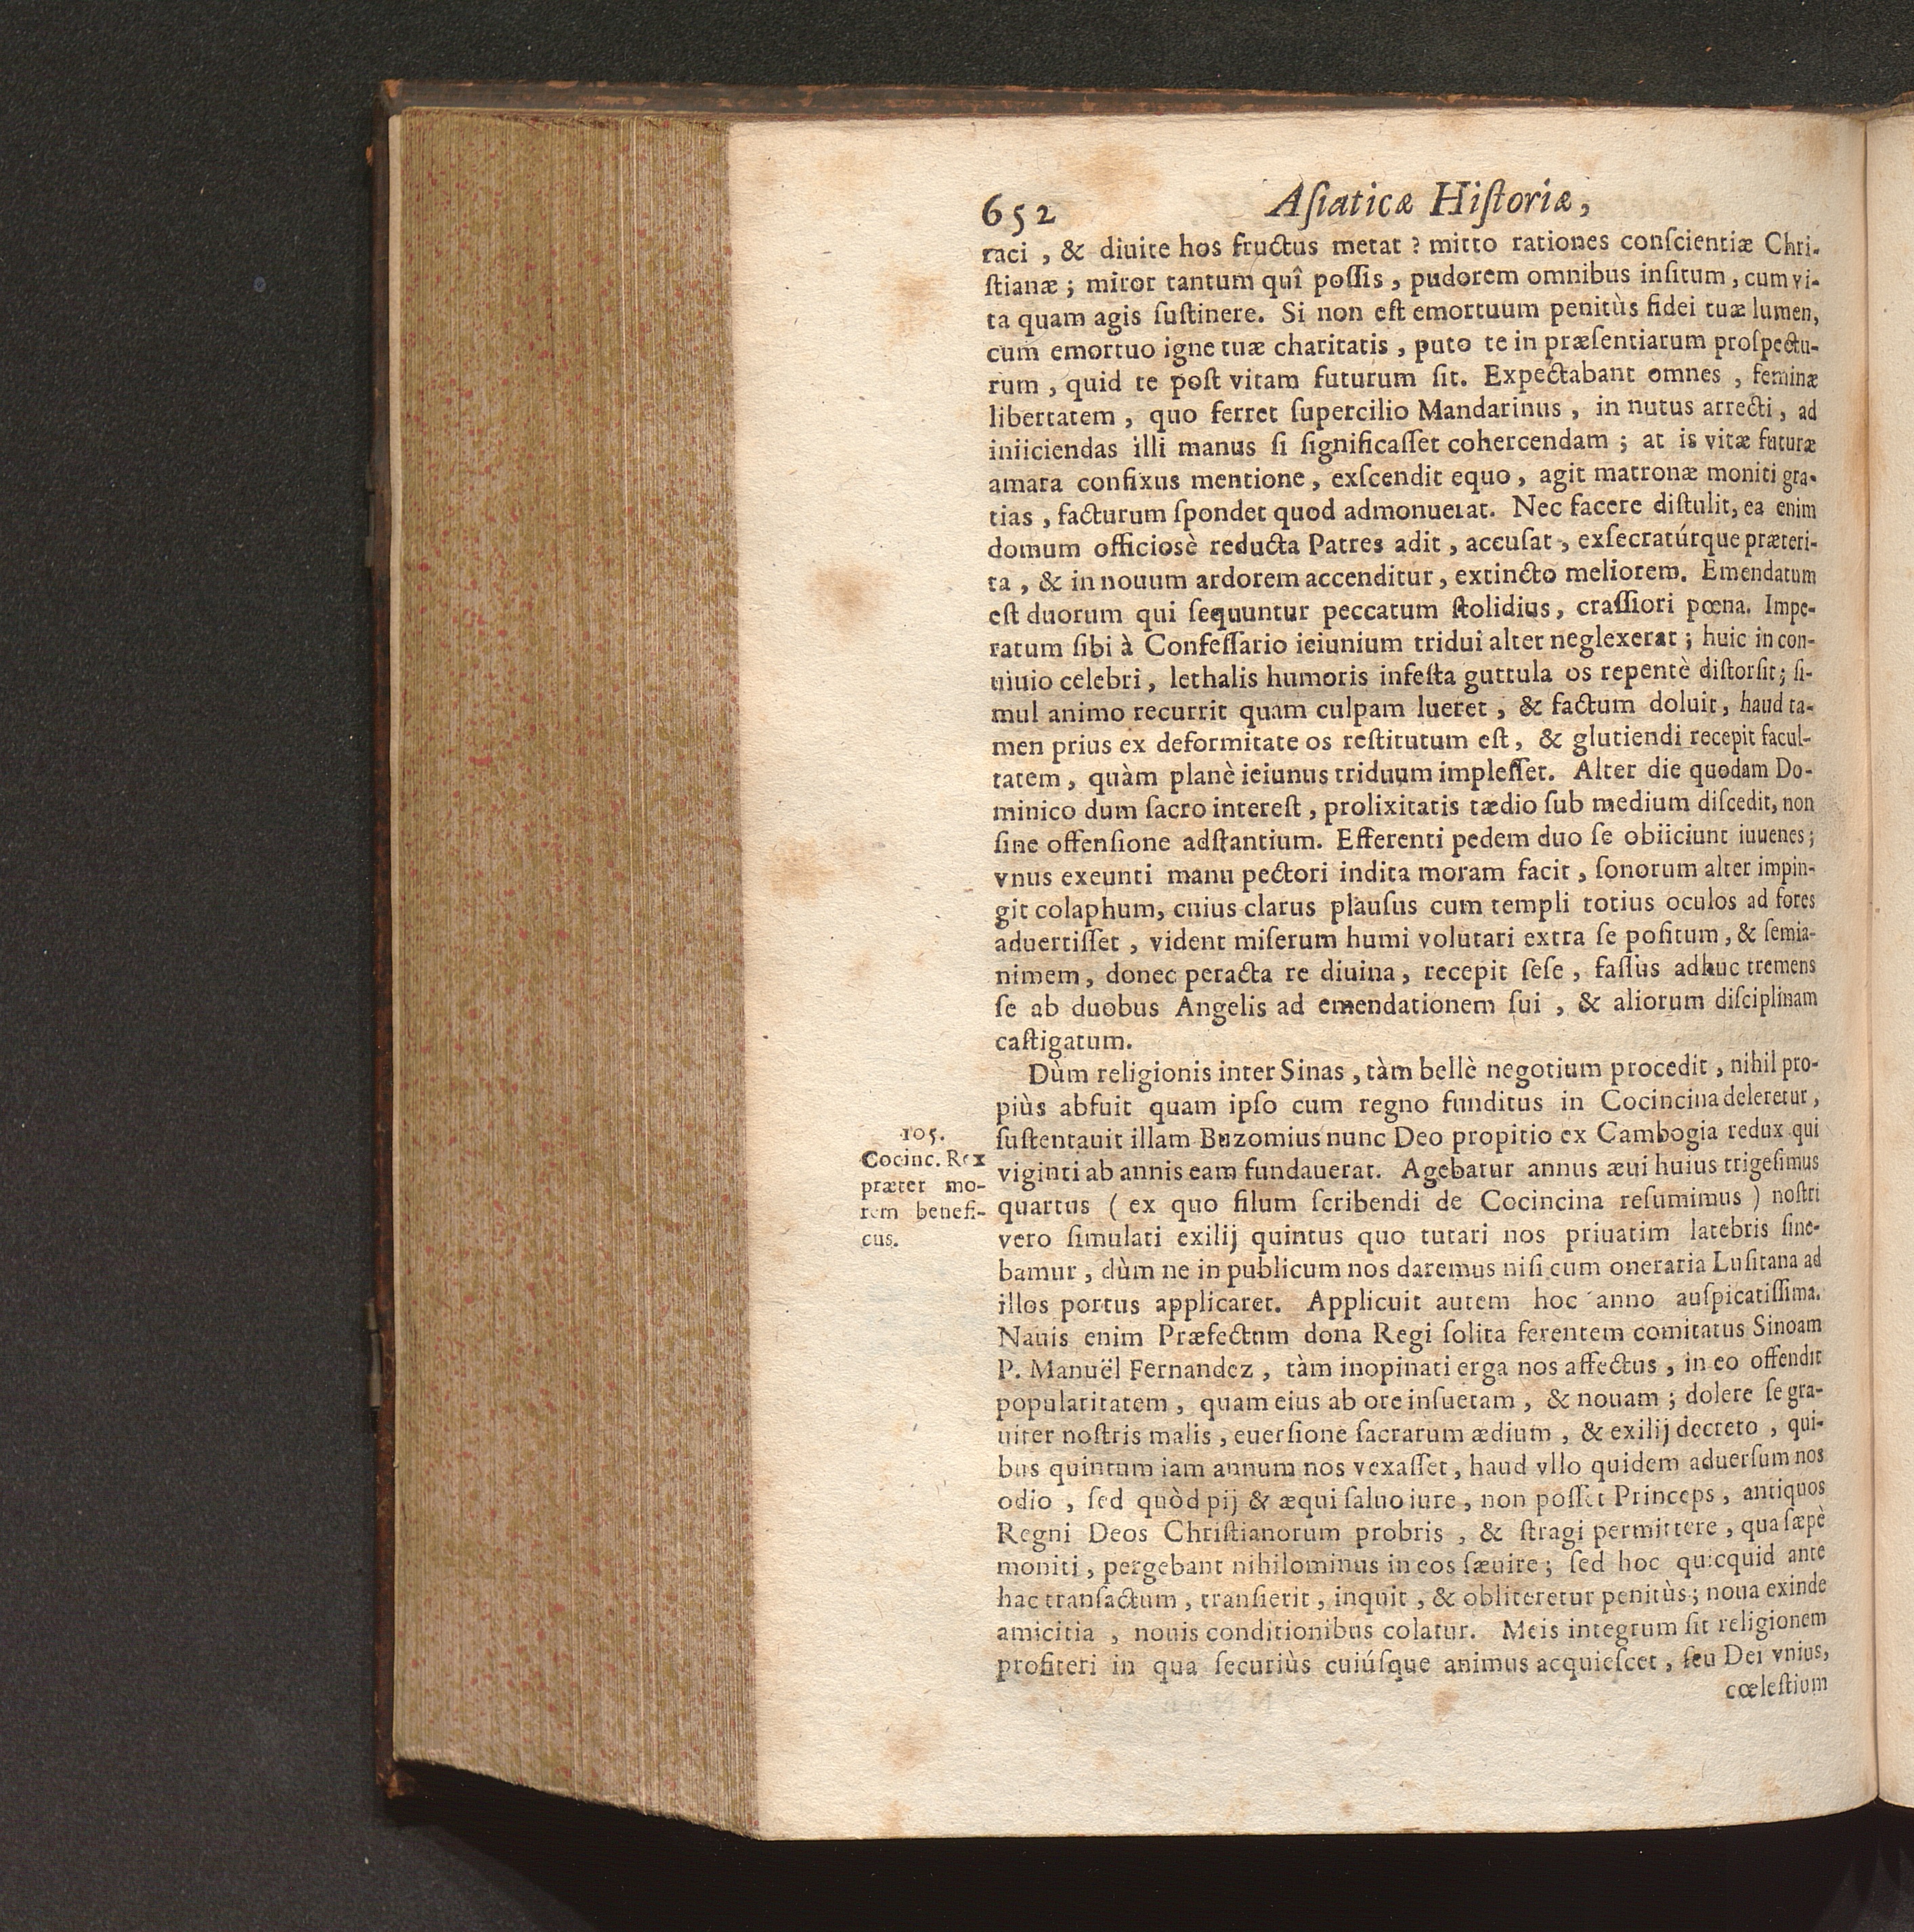 652 Asiaticæ Historiæ,
raci, & diuite hos fructus metat? mitto rationes conscientiæ Chri-
stianæ; miror tantum quî possis, pudorem omnibus insitum, cum vi-
ta quam agis sustinere. Si non est emortuum penitùs fidei tuæ lumen,
cum emortuo igne tuæ charitatis, puto te in præsentiarum prospectu-
rum, quid te post vitam futurum sit. Expectabant omnes, feminæ
libertatem, quo ferret supercilio Mandarinus, in nutus arrecti, ad
iniiciendas illi manus si significasset cohercendam; at is vitæ futuræ
amara confixus mentione, exscendit equo, agit matronæ moniti gra-
tias, facturum spondet quod admonuerat. Nec facere distulit, ea enim
domum officiosè reducta Patres adit, accusat, exsecratúrque præteri-
ta, & in nouum ardorem accenditur, extincto meliorem. Emendatum
est duorum qui sequuntur peccatum stolidius, crassiori pœna. Impe-
ratum sibi à Confessario ieiunium tridui alter neglexerat; huic in con-
uiuio celebri, lethalis humoris infesta guttula os repentè distorsit; si-
mul animo recurrit quam culpam lueret, & factum doluit, haud ta-
men prius ex deformitate os restitutum est, & glutiendi recepit facul-
tatem, quàm planè ieiunus triduum implesset. Alter die quodam Do-
minico dum sacro interest, prolixitatis tædio sub medium discedit, non
sine offensione adstantium. Efferenti pedem duo se obiiciunt iuuenes;
vnus exeunti manu pectori indita moram facit, sonorum alter impin-
git colaphum, cuius clarus plausus cum templi totius oculos ad fores
aduertisset, vident miserum humi volutari extra se positum, & semia-
nimem, donec peracta re diuina, recepit sese, fassus adhuc tremens
se ab duobus Angelis ad emendationem sui, & aliorum disciplinam
castigatum.
Dùm religionis inter Sinas, tàm bellè negotium procedit, nihil pro-
piùs abfuit quam ipso cum regno funditus in Cocincina deleretur,
105.
Cocinc. Rex
præter mo-
rem benefi-
cus.
sustentauit illam Buzomius nunc Deo propitio ex Cambogia redux qui
viginti ab annis eam fundauerat. Agebatur annus æui huius trigesimus
quartus (ex quo filum scribendi de Cocincina resumimus) nostri
vero simulati exilij quintus quo tutari nos priuatim latebris sine-
bamur, dùm ne in publicum nos daremus nisi cum oneraria Lusitana ad
illos portus applicaret. Applicuit autem hoc anno auspicatissima.
Nauis enim Præfectum dona Regi solita ferentem comitatus Sinoam
P. Manuël Fernandez, tàm inopinati erga nos affectus, in eo offendit
popularitatem, quam eius ab ore insuetam, & nouam; dolere se gra-
uiter nostris malis, euersione sacrarum ædium, & exilij decreto, qui-
bus quintum iam annum nos vexasset, haud vllo quidem aduersum nos
odio, sed quòd pij & æqui saluo iure, non posset Princeps, antiquos
Regni Deos Christianorum probris, & stragi permittere, qua sæpè
moniti, pergebant nihilominus in eos sæuire; sed hoc quicquid ante
hac transactum, transierit, inquit, & obliteretur penitùs; noua exinde
amicitia, nouis conditionibus colatur. Meis integrum sit religionem
profiteri in qua securiùs cuiúsque animus acquiescet, seu Dei vnius,
cœlestium